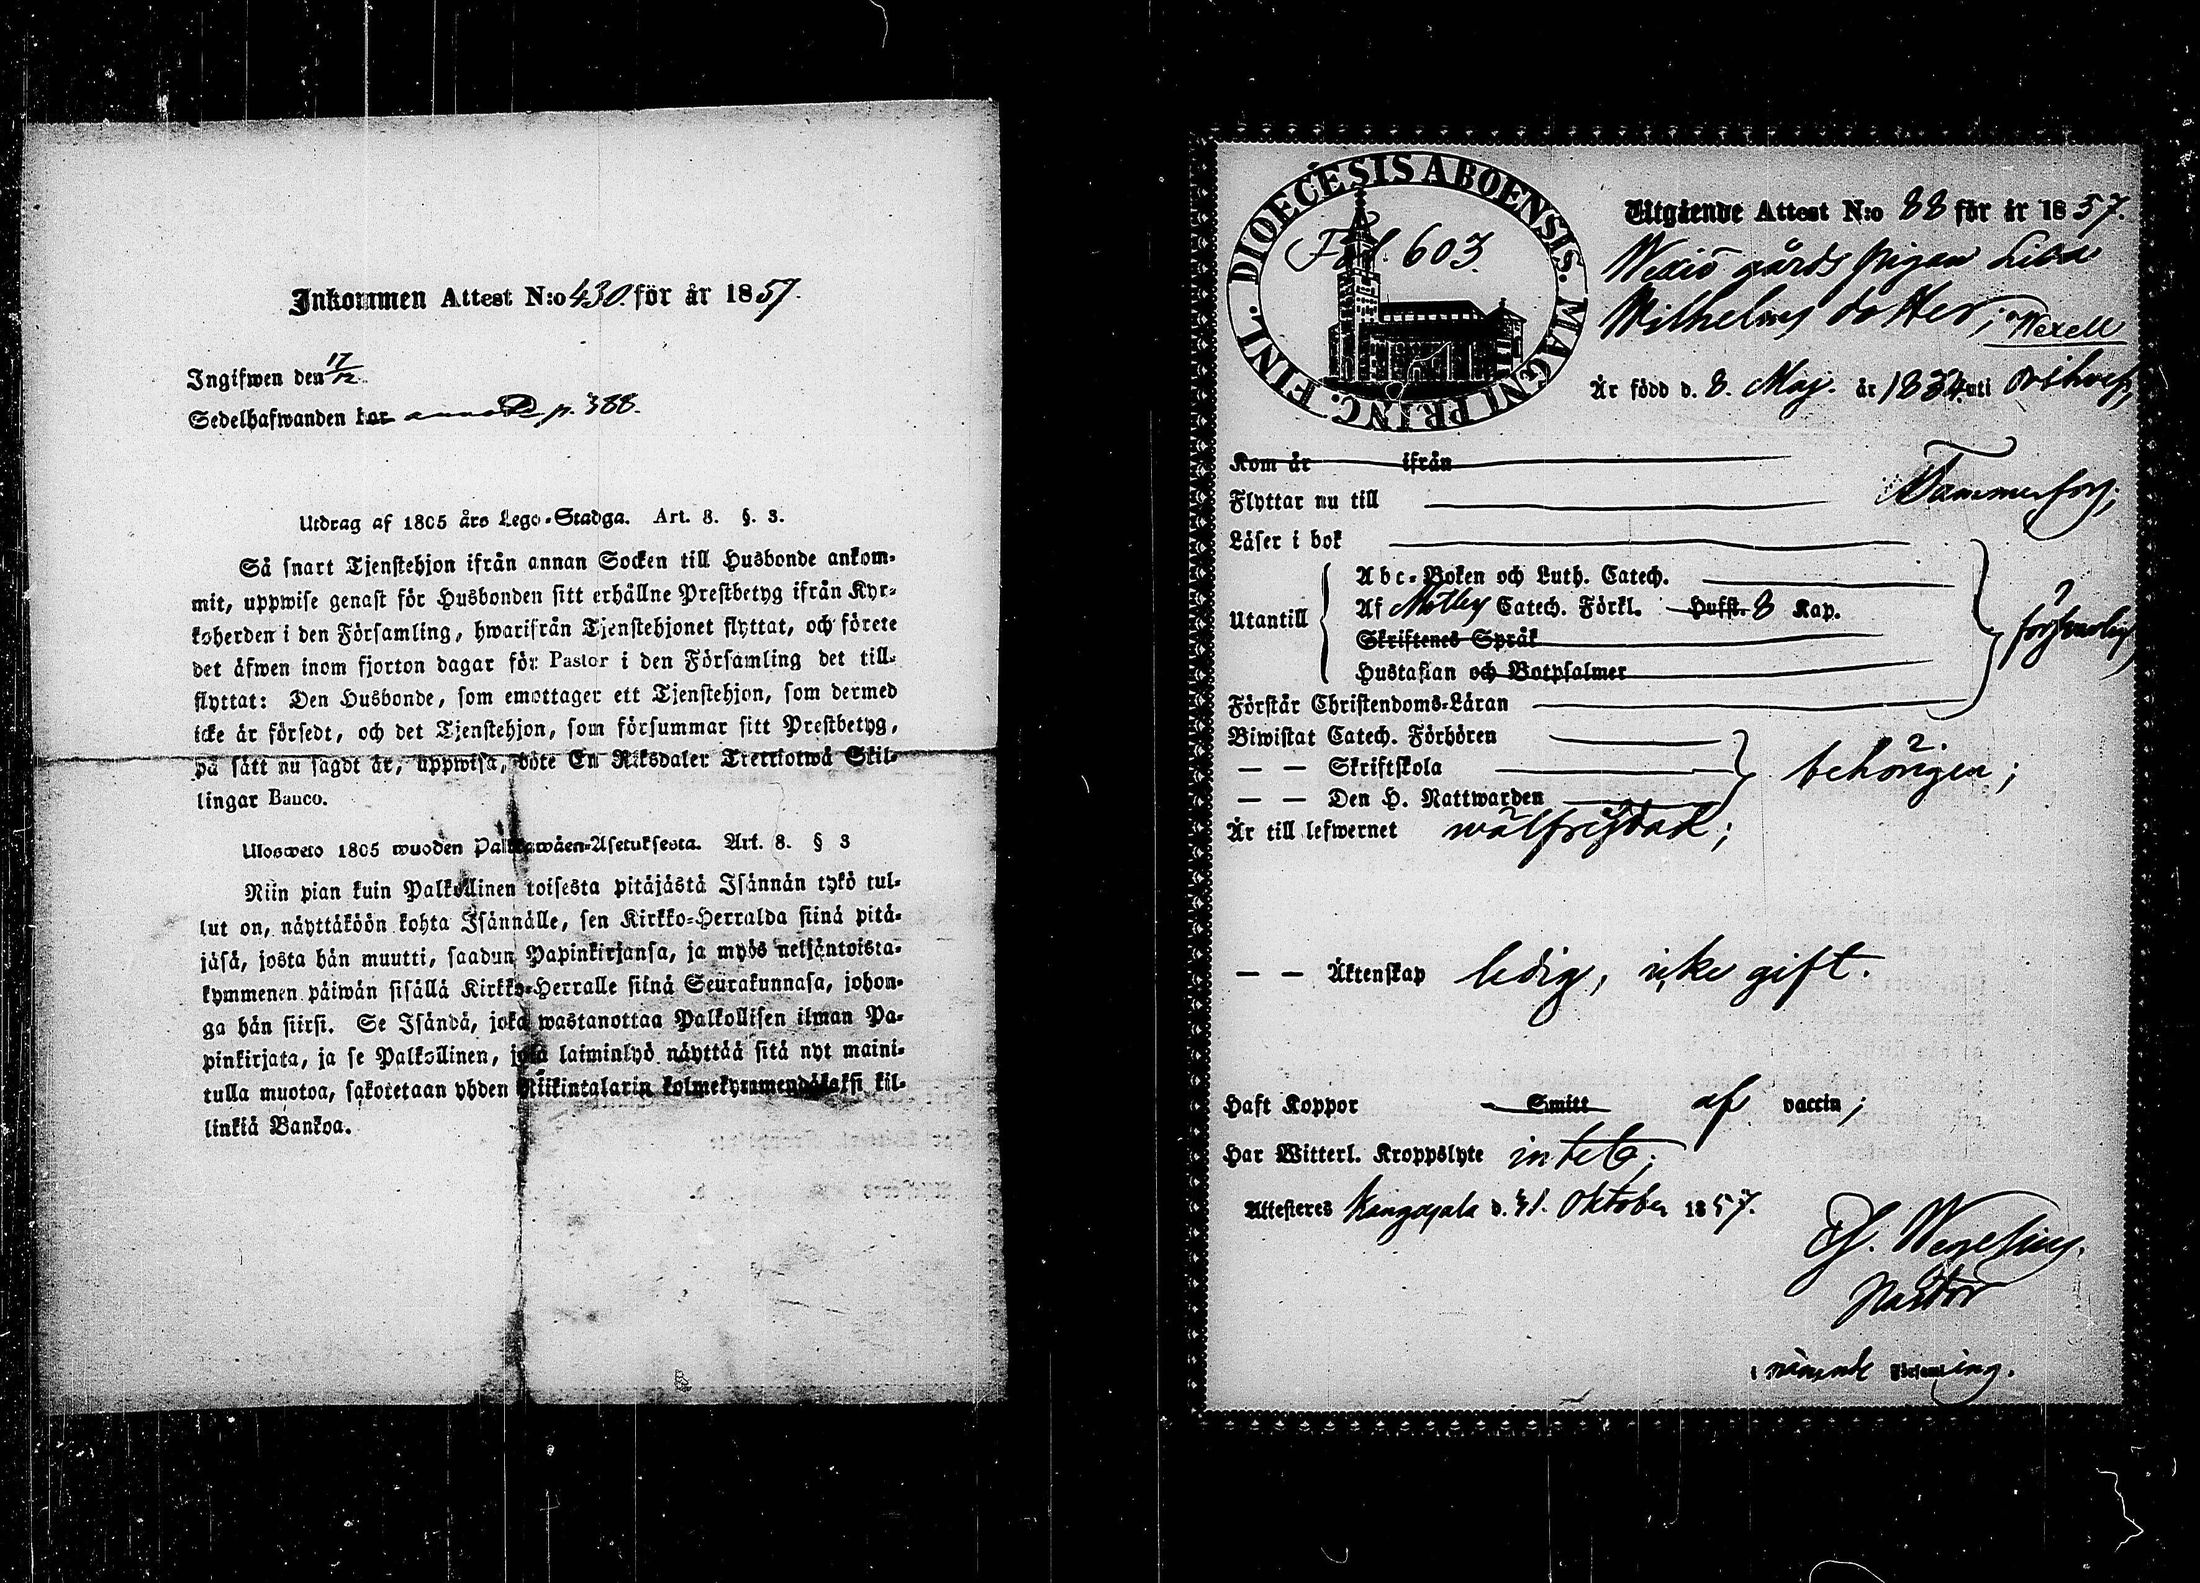 Inkommen Attest N:o 430. för år 1857.
Ingifwen den 17/12.
Sedelhafwanden har p. 388.
Utdrag af 1805 års Lego-Stadga. Art. 8. §. 3.
Så snart Tjenstehjon ifrån annan Socken till Husbonde ankom-
mit, uppwise genast för Husbonden sitt erhållne Prestbetyg ifrån Kyr-
koherden i den Församling, hwarifrån Tjenstehjonet flyttat, och förete
det äfwen inom fjorton dagar för Pastor i den Församling det till-
flyttat: Den Husbonde, som emottager ett Tjenstehjon, som dermed
icke är försedt, och det Tjenstehjon, som försummar sitt Prestbetyg,
på sätt nu sagdt är, uppwisa, böte En Riksdaler Trettiotwå Skil-
lingar Banco.
Ulosweto 1805 wuoden Palkkawäen-Asetuksesta. Art. 8. § 3
Niin pian kuin Palkollinen toisesta pitäjästä Isännän tykö tul-
lut on, näyttäköön kohta Isännälle, sen Kirkko-Herralda siinä pitä-
jäsä, josta hän muutti, saadun Papinkirjansa, ja myös neljäntoista-
kymmenen päiwän sisällä Kirkko-Herralle siinä Seurakunnasa, johon-
ga hän siirsi. Se Isändä, joka wastanottaa Palkollisen ilman Pa-
pinkirjata, ja se Palkollinen, joka laiminlyö näyttää sitä nyt maini-
tulla muotoa, sakotetaan yhden Riikintalarin kolmekymmendäkaksi kil-
linkiä Bankoa.
DIOECESIS ABOENSIS. MAGNI PRINC. FINL.
Fol. 603.
Utgående Attest N:o 88 för år 1857.
Wexiö gårds pigan Lisa
Wilhelms dotter, Wexell
Är född d. 8. Maj. år 1834 uti
Kom år ifrån
Flyttar nu till Tammerfors;
Läser i bok
Utantill
Abc-Boken och Luth. Catech.
Af Catech. Förkl. Hufst. 8 Kap.
Skriftenes Språk
Hustaflan och Botpsalmer
försvarlig
Förstår Christendoms-Läran
Biwistat Catech. Förhören
— — Skriftskola
— — Den H. Nattwarden
behörigen;
Är till lefwernet wälfrejdad;
— — Äktenskap ledig, icke gift.
Haft Koppor Smitt af vaccin;
Har Witterl. Kroppslyte intet;
Attesteres Kangasala d. 31. Oktober 1857.
Wegelius.
Pastor
i nämnde Församling.